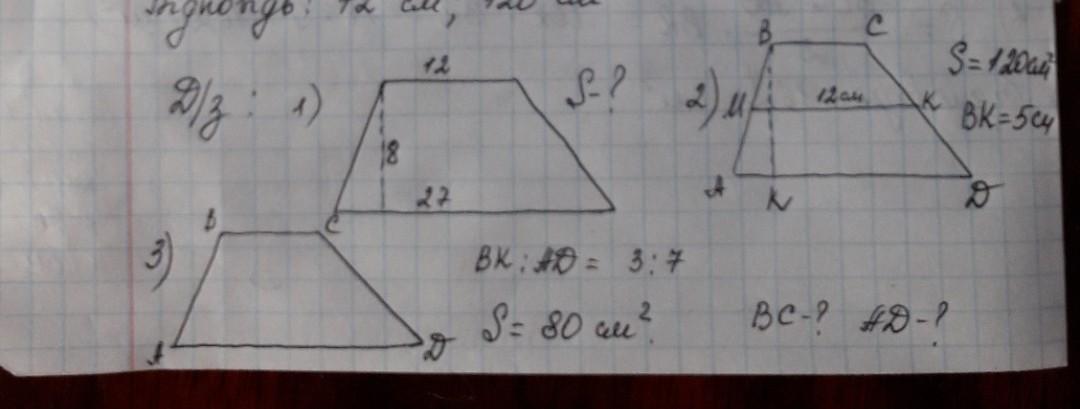 12 см, 120 см
Д/з : 1)
12
8
27
S-?
2)
B C
M 12см K
A K D
S=120см²
BK=5см
3)
B C
A D
BK : AD = 3:7
S= 80 см².
BC-? AD-?